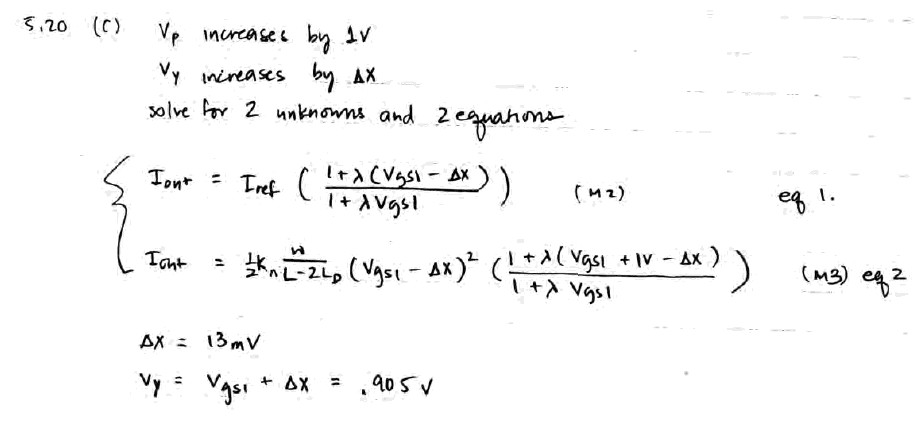 5.20 (c) Vp increases by 1V
Vy increases by ΔX
solve for 2 unknowns and 2 equations
Iout = Iref ( (1+λ(Vgs1 - ΔX)) / (1+λVgs1) ) (M2) eq 1.
Iout = ½ kn W/(L-2LD) (Vgs1 - ΔX)² ( (1+λ(Vgs1 + 1V - ΔX)) / (1+λ Vgs1) ) (M3) eq 2
ΔX = 13mV
Vy = Vgs1 + ΔX = .905 V